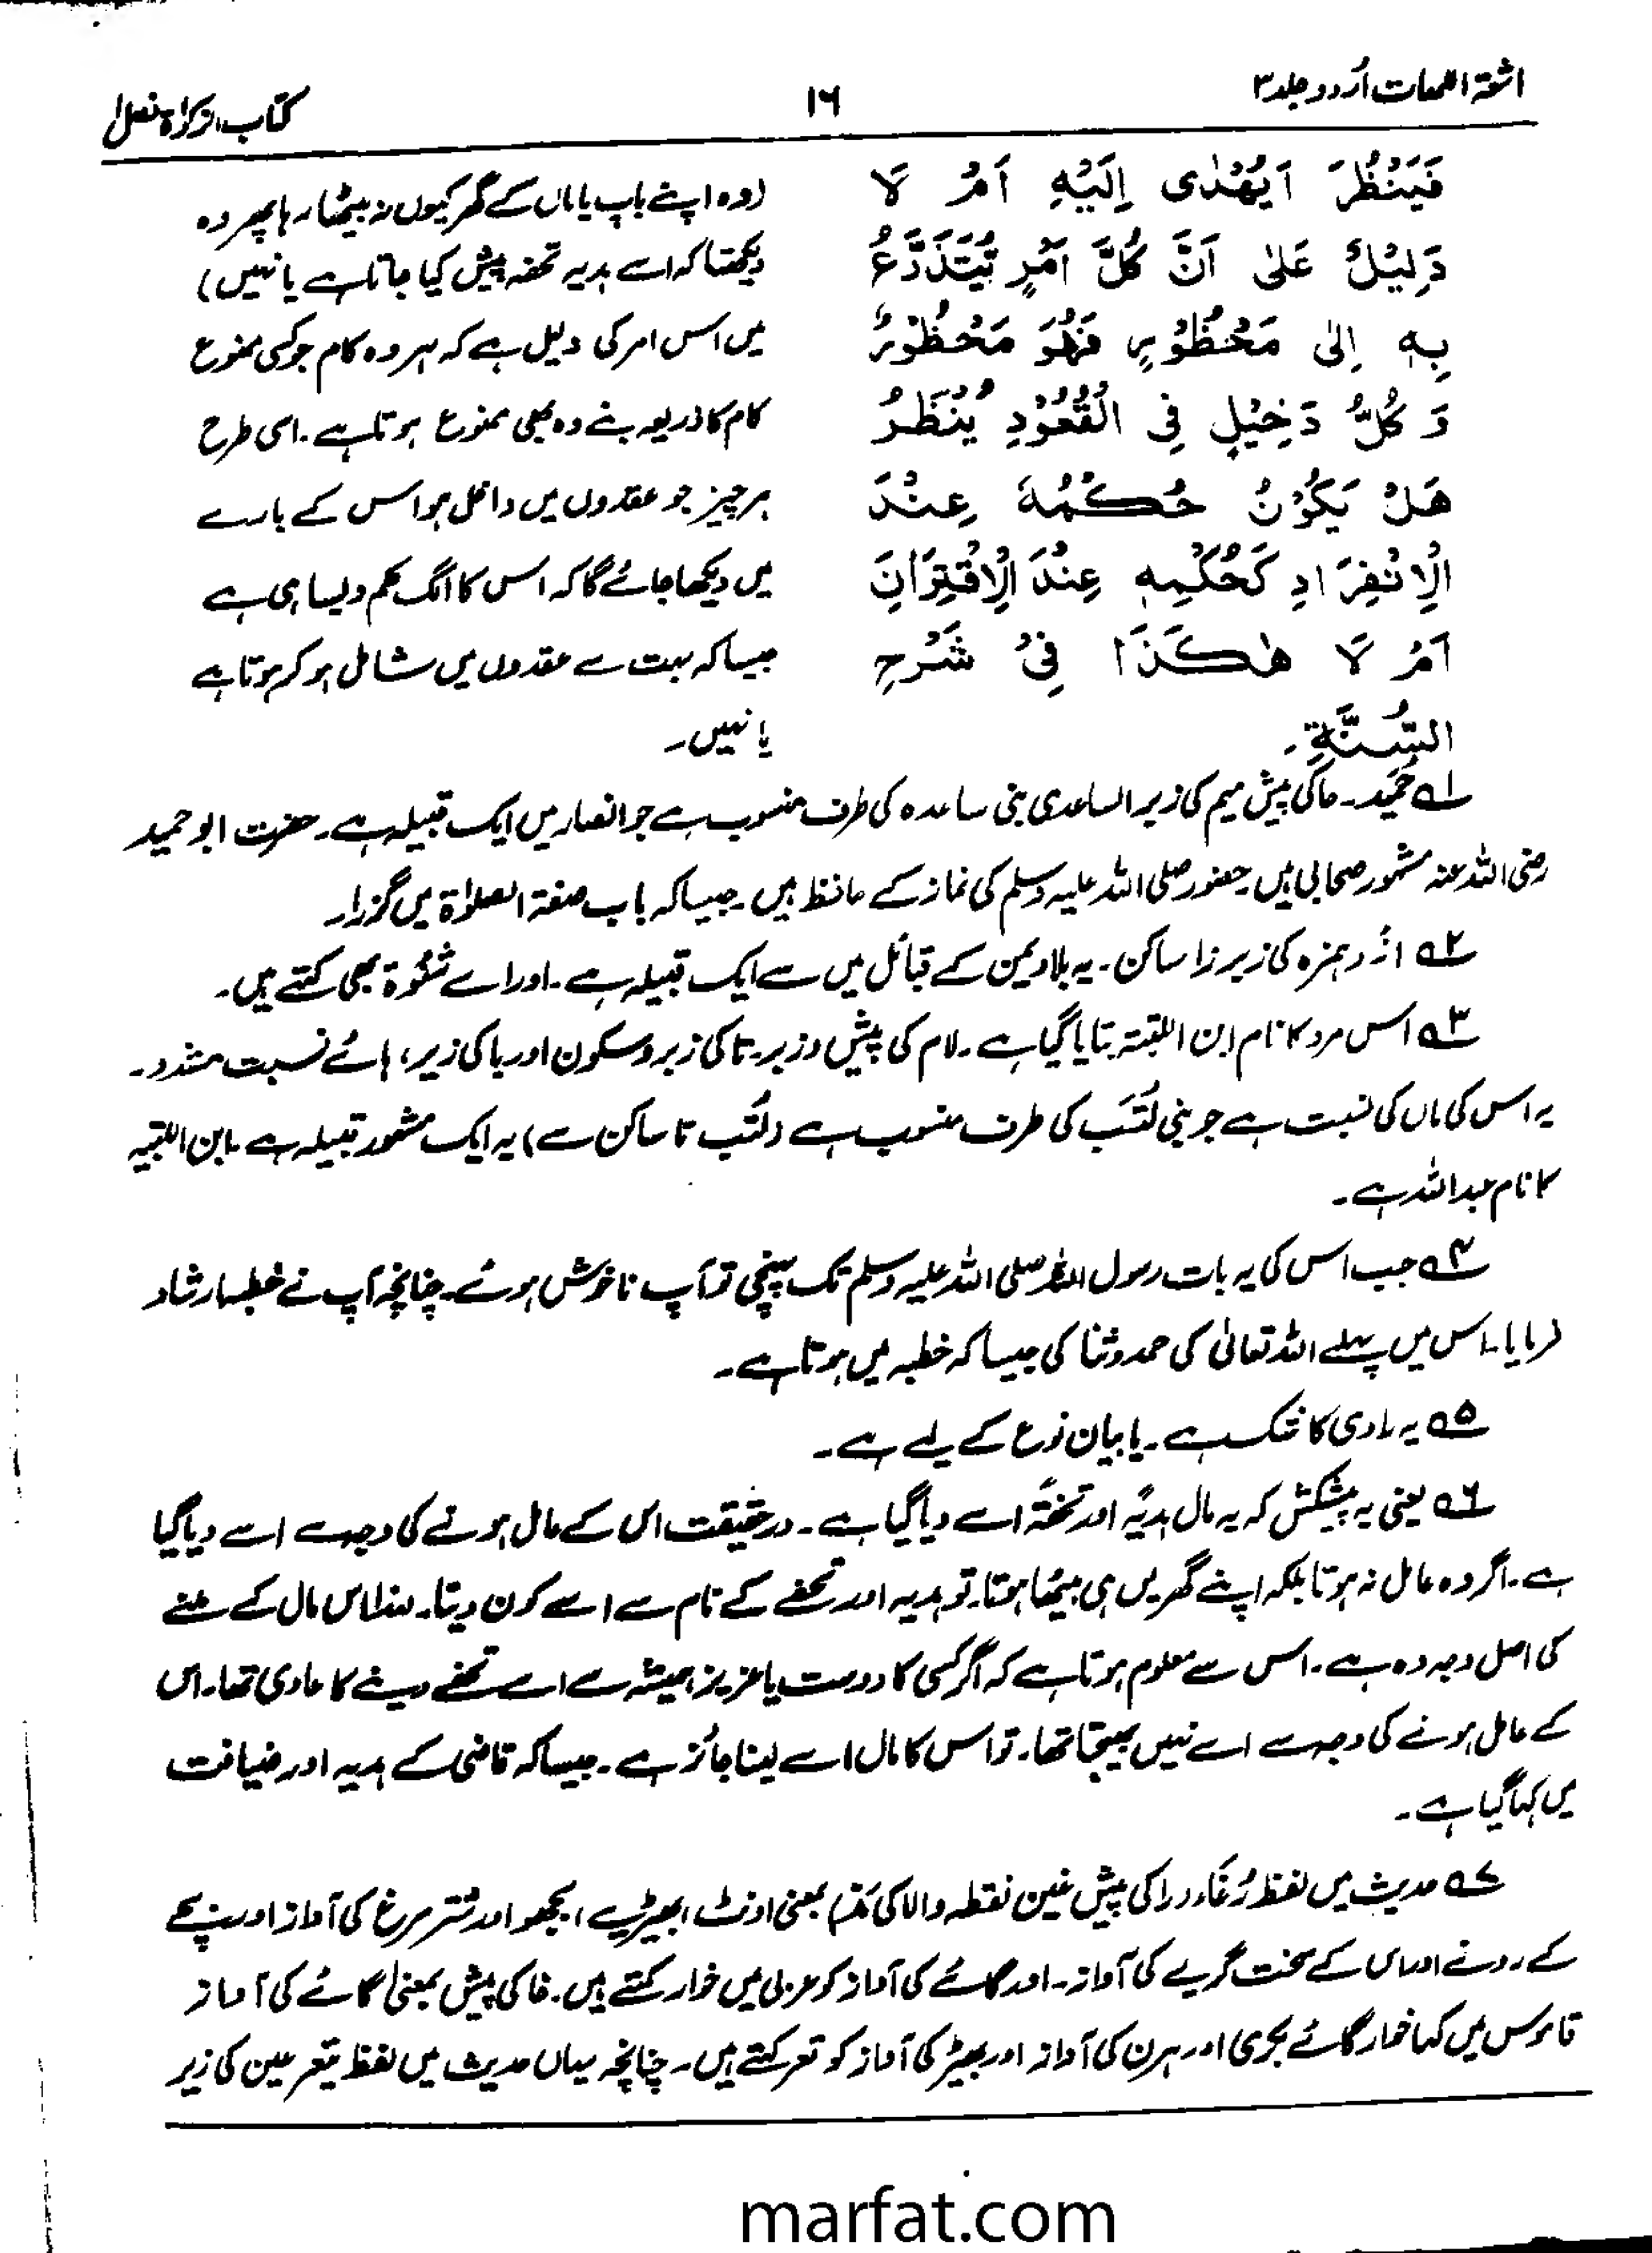 اشعۃ اللمعات اُردو جلد۳
۱۶
کتاب الزکوٰۃ فصل۱
فَيَنْظُرَ اَيُهْدٰى اِلَيْهِ اَمْ لَا
دَلِيْلٌ عَلٰى اَنَّ كُلَّ اَمْرٍ يُّتَذَرَّعُ
بِهٖ اِلٰى مَحْظُوْرٍ فَهُوَ مَحْظُوْرٌ
وَ كُلُّ دَخِيْلٍ فِى الْقُعُوْدِ يُنْظَرُ
هَلْ يَكُوْنُ حُكْمُهٗ عِنْدَ
الْاِنْفِرَادِ كَحُكْمِهٖ عِنْدَ الْاِقْتِرَانِ
اَمْ لَا هٰكَذَا فِىْ شَرْحِ
السُّنَّةِ۔
(وہ اپنے باپ یا ماں کے گھر کیوں نہ بیٹھا رہا پھر وہ
دیکھتا کہ اسے ہدیہ تحفہ پیش کیا جاتا ہے یا نہیں)
میں اس امر کی دلیل ہے کہ ہر وہ کام جو کسی ممنوع
کام کا ذریعہ بنے وہ بھی ممنوع ہوتا ہے۔ اسی طرح
ہر چیز جو عقدوں میں داخل ہو اس کے بارے
میں دیکھا جائے گا کہ اس کا الگ حکم ویسا ہی ہے
جیسا کہ بہت سے عقدوں میں شامل ہو کر ہوتا ہے
یا نہیں۔
۱؎ حُمَید۔ حا کی پیش میم کی زبر الساعدی بنی ساعدہ کی طرف منسوب ہے جو انصار میں ایک قبیلہ ہے۔ حضرت ابو حمید
رضی اللہ عنہ مشہور صحابی ہیں حضور صلی اللہ علیہ وسلم کی نماز کے حافظ ہیں۔ جیسا کہ باب صفۃ الصلوٰۃ میں گزرا۔
۲؎ ازد ہمزہ کی زبر زا ساکن۔ یہ بلاد یمن کے قبائل میں سے ایک قبیلہ ہے۔ اور اسے شنُوۃ بھی کہتے ہیں۔
۳؎ اس مرد کا نام ابن اللتبیۃ بتایا گیا ہے۔ لام کی پیش و زبر۔ تا کی زبر و سکون اور با کی زیر، یائے نسبت مشدد۔
یہ اس کی ماں کی نسبت ہے جو بنی لُتَب کی طرف منسوب ہے (لُتْب تا ساکن سے) یہ ایک مشہور قبیلہ ہے۔ ابن اللتبیہ
کا نام عبداللہ ہے۔
۴؎ جب اس کی یہ بات رسول اللہ صلی اللہ علیہ وسلم تک پہنچی تو آپ ناخوش ہوئے۔ چنانچہ آپ نے خطبہ ارشاد
فرمایا۔ اس میں پہلے اللہ تعالیٰ کی حمد و ثنا کی جیسا کہ خطبہ میں ہوتا ہے۔
۵؎ یہ راوی کا شک ہے۔ یا بیان نوع کے لیے ہے۔
۶؎ یعنی یہ پیشکش کہ یہ مال ہدیۃً اور تحفۃً اسے دیا گیا ہے۔ درحقیقت اس کے عامل ہونے کی وجہ سے اسے دیا گیا
ہے۔ اگر وہ عامل نہ ہوتا بلکہ اپنے گھر میں ہی بیٹھا ہوتا۔ تو ہدیہ اور تحفے کے نام سے اسے کون دیتا۔ لہٰذا اس مال کے ملنے
کی اصل وجہ وہ ہے۔ اس سے معلوم ہوتا ہے کہ اگر کسی کا دوست یا عزیز ہمیشہ سے اسے تحفے دینے کا عادی تھا۔ اس
کے عامل ہونے کی وجہ سے اسے نہیں بھیجتا تھا۔ تو اس کا مال اسے لینا جائز ہے۔ جیسا کہ قاضی کے ہدیہ اور ضیافت
میں کہا گیا ہے۔
۷؎ حدیث میں لفظ رُغَاء، را کی پیش غین نقطہ والا کی بمعنی اونٹ، بھیڑیے، بجھو اور شتر مرغ کی آواز اور بچے
کے رونے اور اس کے سخت گریے کی آواز۔ اور گائے کی آواز کو عربی میں خوار کہتے ہیں۔ خا کی پیش بمعنی گائے کی آواز
قاموس میں کہا خوار گائے بکری اور ہرن کی آواز اور بھیڑ کی آواز کو تعر کہتے ہیں۔ چنانچہ یہاں حدیث میں لفظ تیعر عین کی زبر
marfat.com